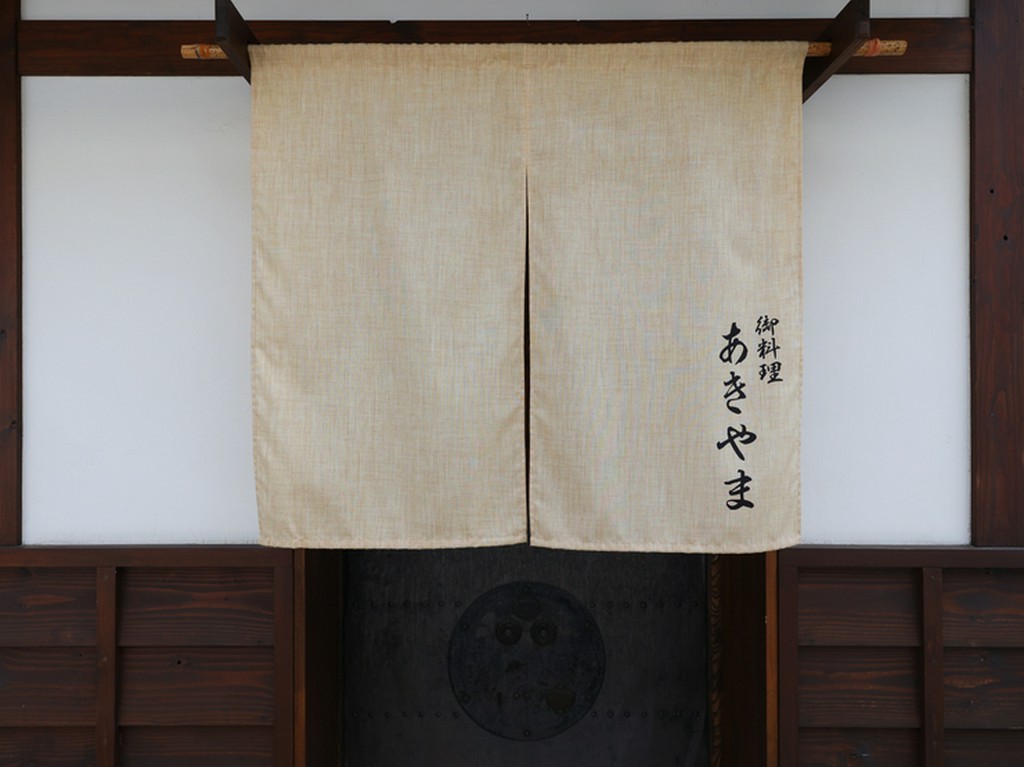 御料理
あきやま